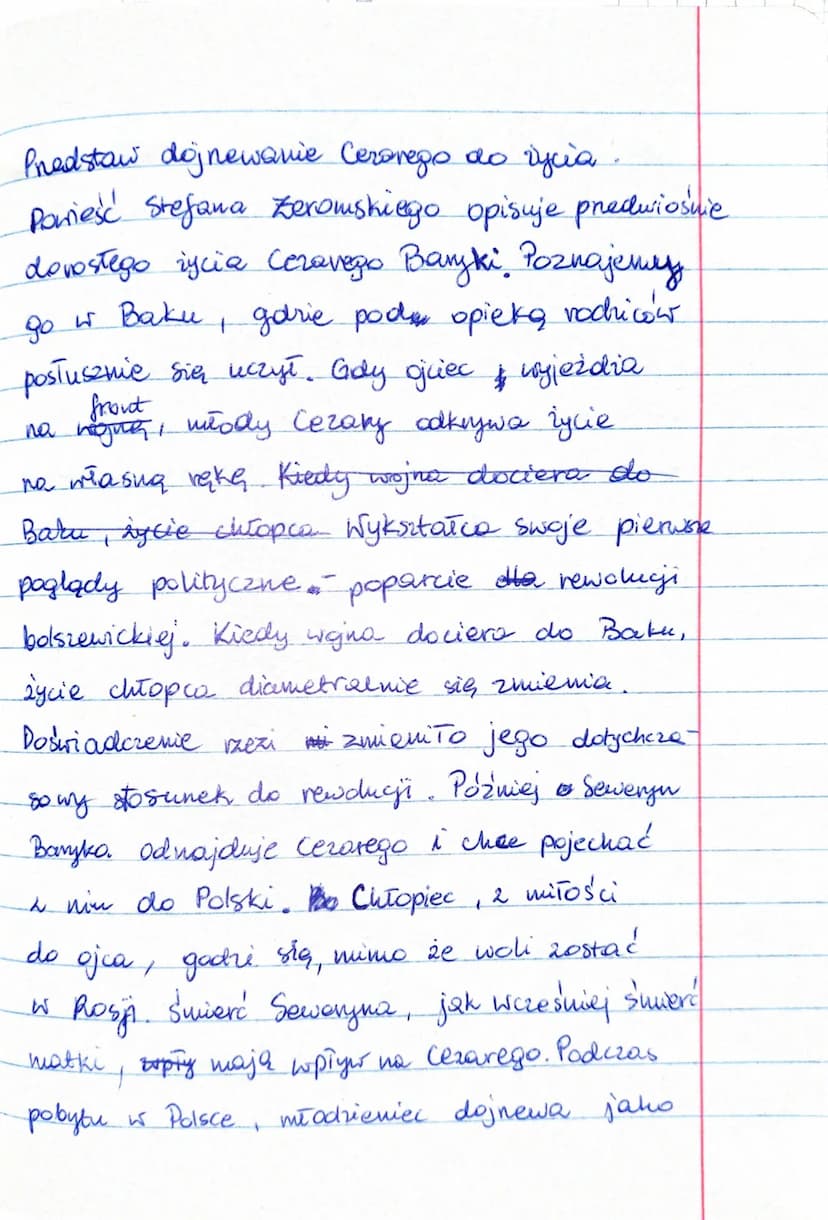 Przedstaw dojrzewanie Cezarego do życia.
Powieść Stefana Żeromskiego opisuje przedwiośnie
dorosłego życia Cezarego Baryki. Poznajemy
go w Baku, gdzie pod opieką rodziców
posłusznie się uczył. Gdy ojciec wyjeżdża
na front, młody Cezary odkrywa życie
na własną rękę. Kiedy wojna dociera do
Baku, życie chłopca Wykształca swoje pierwsze
poglądy polityczne - poparcie dla rewolucji
bolszewickiej. Kiedy wojna dociera do Baku,
życie chłopca diametralnie się zmienia.
Doświadczenie rzezi zmieniło jego dotychcza-
sowy stosunek do rewolucji. Później Seweryn
Baryka odnajduje Cezarego i chce pojechać
z nim do Polski. Chłopiec, z miłości
do ojca, godzi się, mimo że woli zostać
w Rosji. Śmierć Seweryna, jak wcześniej śmierć
matki, mają wpływ na Cezarego. Podczas
pobytu w Polsce, młodzieniec dojrzewa jako